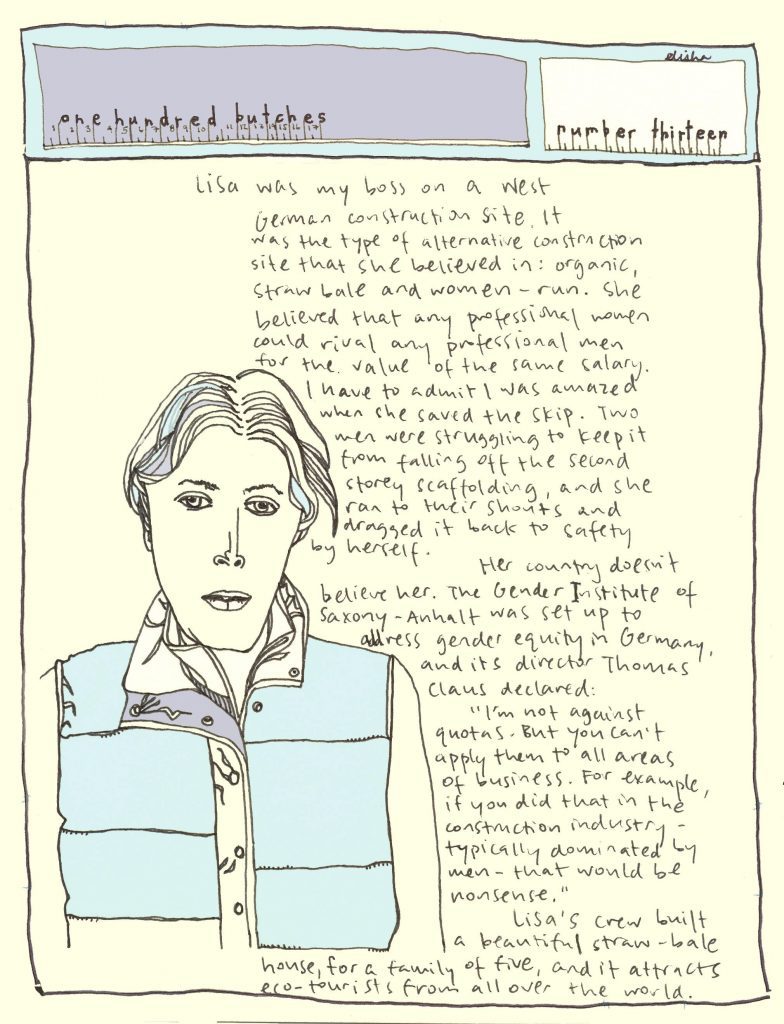 elisha
one hundred butches
number thirteen
1 2 3 4 5 6 7 8 9 10 11 12 13 14 15 16 17
Lisa was my boss on a West
German construction site. It
was the type of alternative construction
site that she believed in: organic,
straw bale and women-run. She
believed that any professional women
could rival any professional men
for the value of the same salary.
I have to admit I was amazed
when she saved the skip. Two
men were struggling to keep it
from falling off the second
storey scaffolding, and she
ran to their shouts and
dragged it back to safety
by herself.
Her country doesn't
believe her. The Gender Institute of
Saxony-Anhalt was set up to
address gender equity in Germany,
and its director Thomas
Claus declared:
"I'm not against
quotas. But you can't
apply them to all areas
of business. For example,
if you did that in the
construction industry -
typically dominated by
men - that would be
nonsense."
Lisa's crew built
a beautiful straw-bale
house, for a family of five, and it attracts
eco-tourists from all over the world.